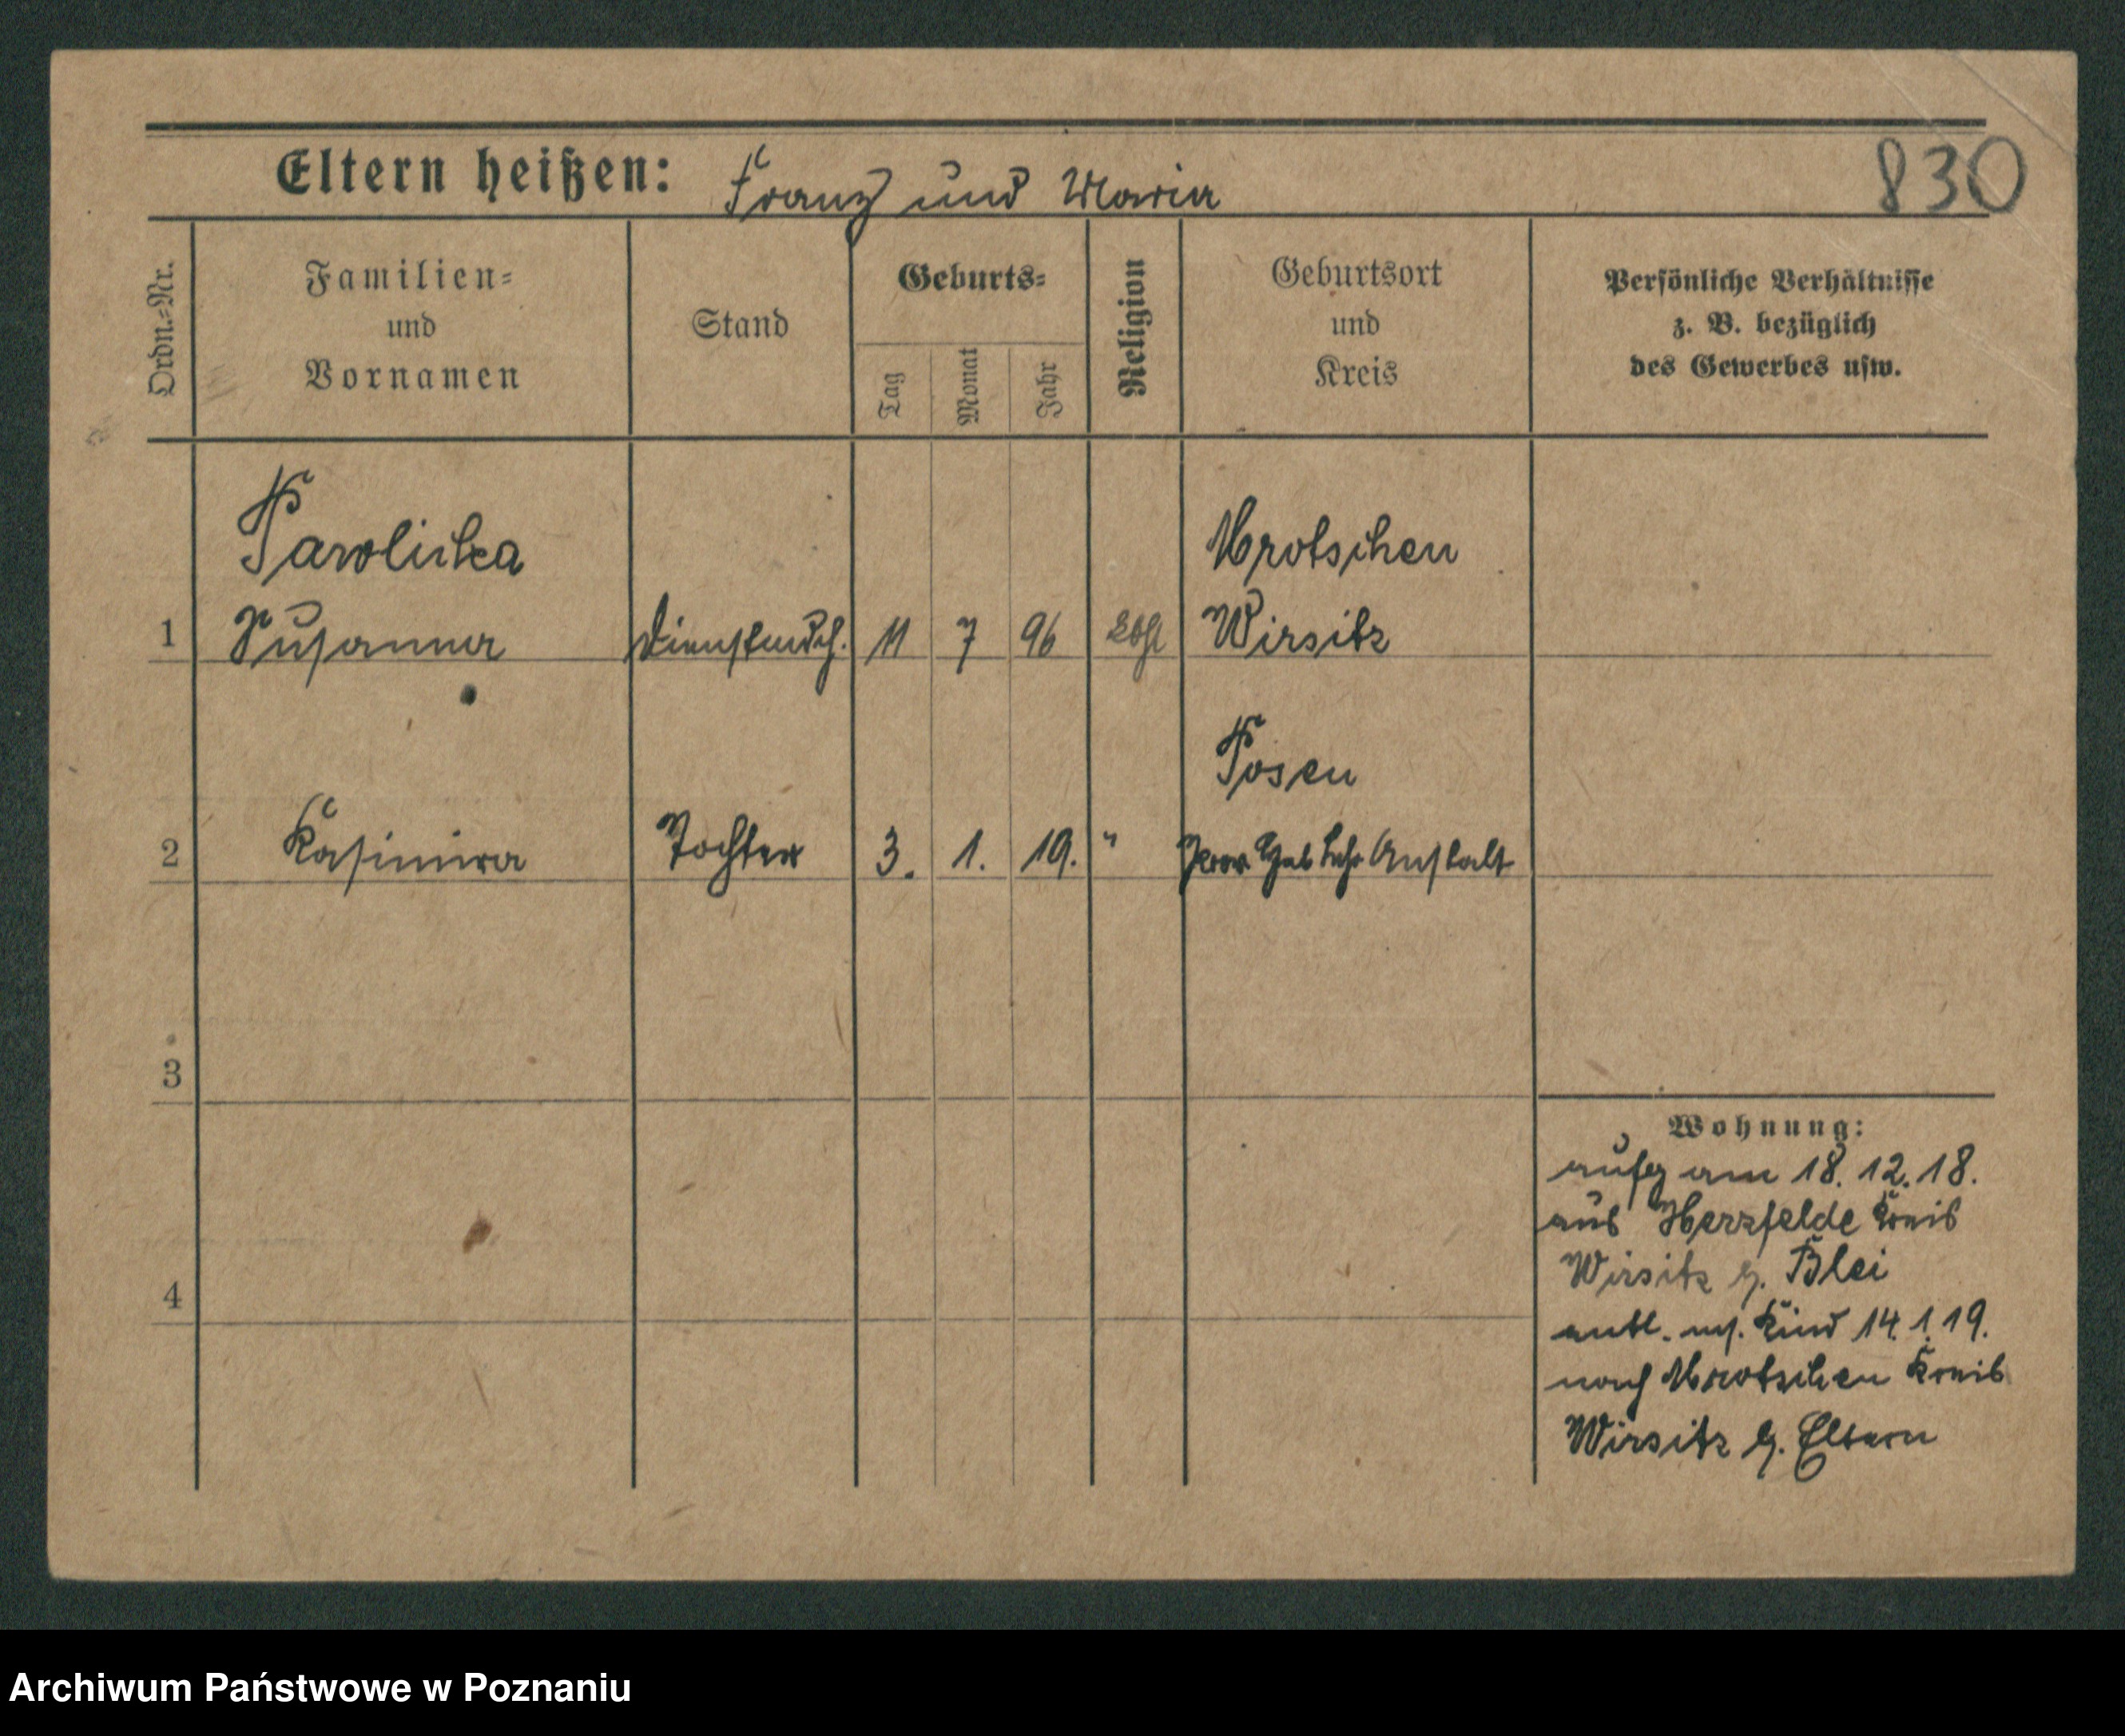 Eltern heißen: Franz und Maria
830
Ordn.=Nr.
Familien=
und
Vornamen
Stand
Geburts=
Tag
Monat
Jahr
Religion
Geburtsort
und
Kreis
Persönliche Verhältnisse
z. B. bezüglich
des Gewerbes usw.
Mrotschen
1 Susanna Dienstmdch. 11 7 96 Wirsitz
Posen
2 Kasimira Tochter 3. 1. 19. " Prov Heb Lehr Anstalt
3
4
Wohnung:
am 18. 12. 18.
aus Herzfelde Kreis
Wirsitz z. Blei
entl. m. Kind 14. 1. 19.
nach Mrotschen Kreis
Wirsitz z. Eltern
Archiwum Państwowe w Poznaniu